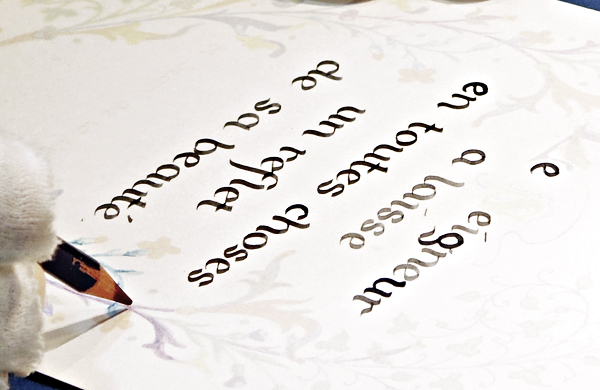 e eigneur
a laisse
en toutes choses
un reflet
de sa beauté